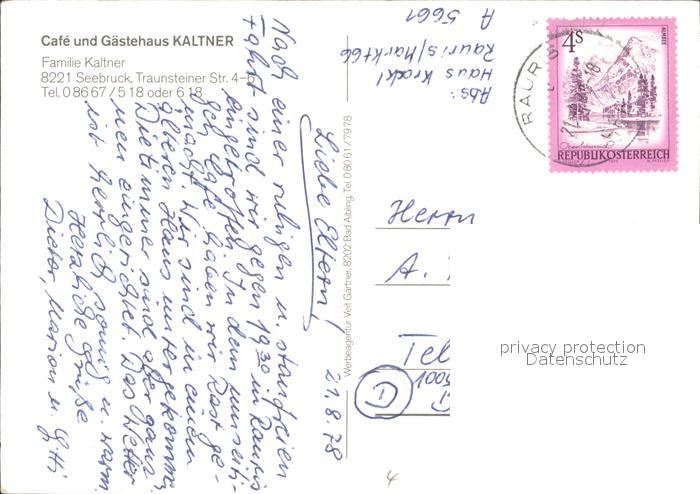 Café und Gästehaus KALTNER
Familie Kaltner
8221 Seebruck, Traunsteiner Str. 4-6
Tel. 0 86 67 / 5 18 oder 6 18
Werbeagentur Veit Gärtner, 8202 Bad Aibling, Tel. 0 80 61 / 7978
21.8.78
Liebe Eltern!
Nach einer ruhigen u. staufreien
Fahrt sind wir gegen 19³⁰ in Rauris
eingetroffen. In dem umseiti-
gen Café haben wir Rast ge-
macht. Wir sind in einem
älteren Haus untergekommen.
Die Zimmer sind aber ganz
neu eingerichtet. Das Wetter
ist herrlich sonnig u. warm.
Herzliche Grüße
Dieter, Marion u. Gitti
Abs.:
Haus Krackl
Rauris/Markt 66
A 5661
RAURIS
4S
ALMSEE
Oberösterreich
REPUBLIK ÖSTERREICH
Herrn
A.
Tel
D
100
privacy protection
Datenschutz
4